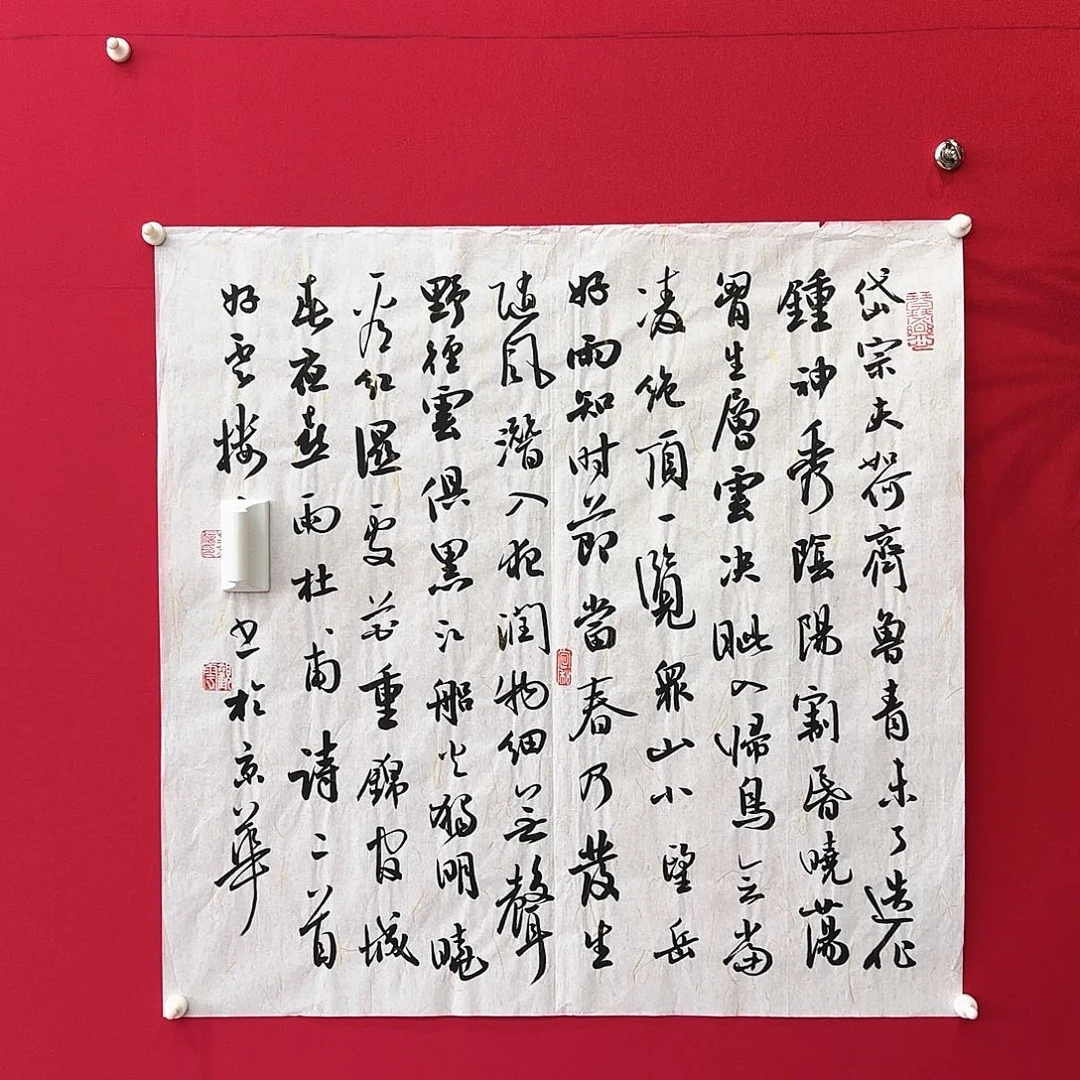 岱宗夫如何齊魯青未了造化
鍾神秀陰陽割昏曉蕩
胷生層雲决眦入歸鳥會當
凌絶頂一覽眾山小望岳
好雨知时節當春乃發生
随風潛入夜潤物细無聲
野徑雲俱黑江船火獨明曉
看紅濕處花重錦官城
春夜喜雨杜甫詩二首
好雲楼书於京華